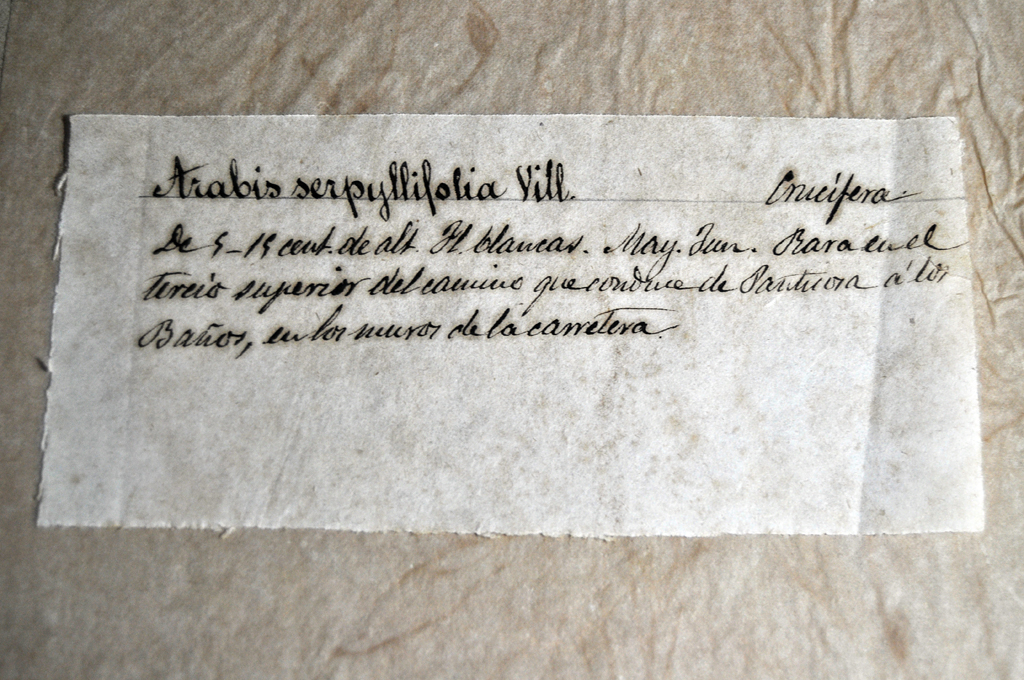 Arabis serpyllifolia Vill. Crucífera.
De 5-15 cent. de alt. Fl. blancas. May. Jun. Rara en el
tercio superior del camino que conduce de Panticosa á los
Baños, en los muros de la carretera.